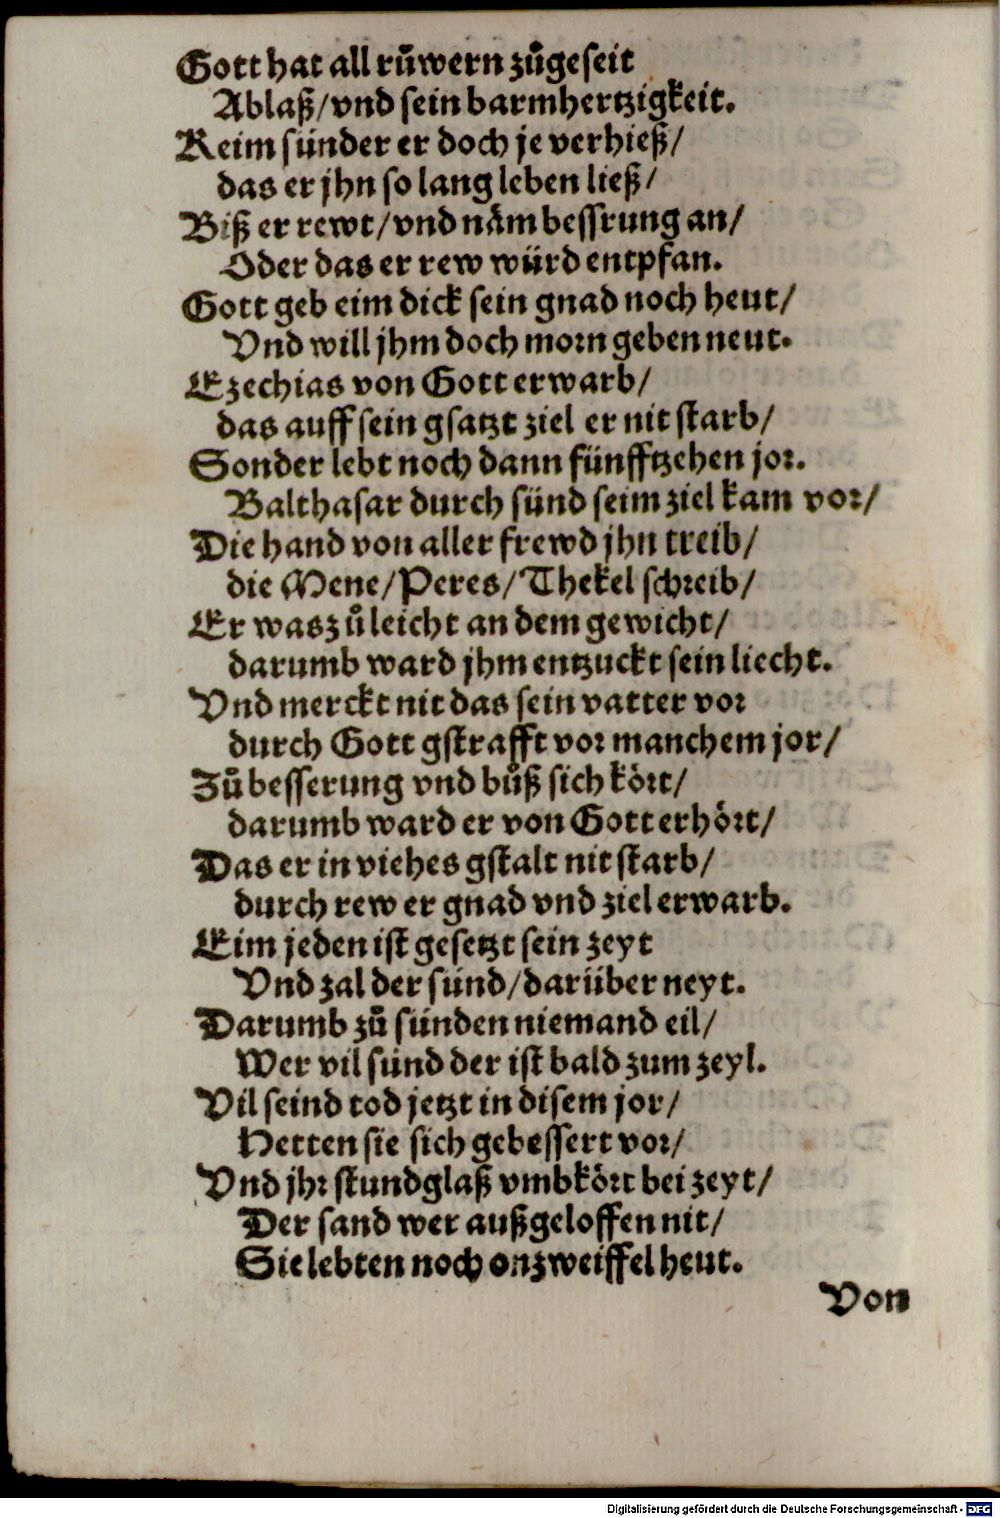 Gott hat all rüwern zůgeseit
Ablaß/vnd sein barmhertzigkeit.
Keim sünder er doch je verhieß/
das er jhn so lang leben ließ/
Biß er rewt/vnd näm bessrung an/
Oder das er rew würd entpfan.
Gott geb eim dick sein gnad noch heut/
Vnd will jhm doch morn geben neut.
Ezechias von Gott erwarb/
das auff sein gsatzt ziel er nit starb/
Sonder lebt noch dann fünfftzehen jor.
Balthasar durch sünd seim ziel kam vor/
Die hand von aller frewd jhn treib/
die Mene/Peres/Thekel schreib/
Er was zů leicht an dem gewicht/
darumb ward jhm entzuckt sein liecht.
Vnd merckt nit das sein vatter vor
durch Gott gstrafft vor manchem jor/
Zů besserung vnd bůß sich kört/
darumb ward er von Gott erhört/
Das er in viehes gstalt nit starb/
durch rew er gnad vnd ziel erwarb.
Eim jeden ist gesetzt sein zeyt
Vnd zal der sünd/darüber neyt.
Darumb zů sünden niemand eil/
Wer vil sünd der ist bald zum zeyl.
Vil seind tod jetzt in disem jor/
Hetten sie sich gebessert vor/
Vnd jhr stundglaß vmbkört bei zeyt/
Der sand wer außgeloffen nit/
Sie lebten noch on zweiffel heut.
Von
Digitalisierung gefördert durch die Deutsche Forschungsgemeinschaft - DFG